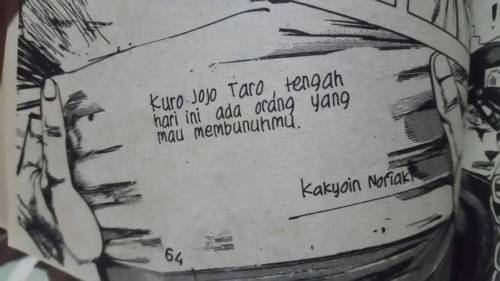 Kuro Jojo Taro, tengah
hari ini ada orang yang
mau membunuhmu.
Kakyoin Noriaki
64